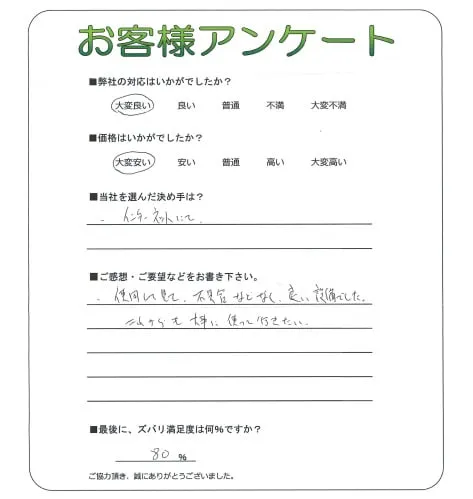 お客様アンケート
■弊社の対応はいかがでしたか？
大変良い 良い 普通 不満 大変不満
■価格はいかがでしたか？
大変安い 安い 普通 高い 大変高い
■当社を選んだ決め手は？
・ インターネットにて。
■ご感想・ご要望などをお書き下さい。
・ 使用して見て、不具合などなく、良い設備でした。
これからも大事に使って行きたい。
■最後に、ズバリ満足度は何％ですか？
80 ％
ご協力頂き、誠にありがとうございました。